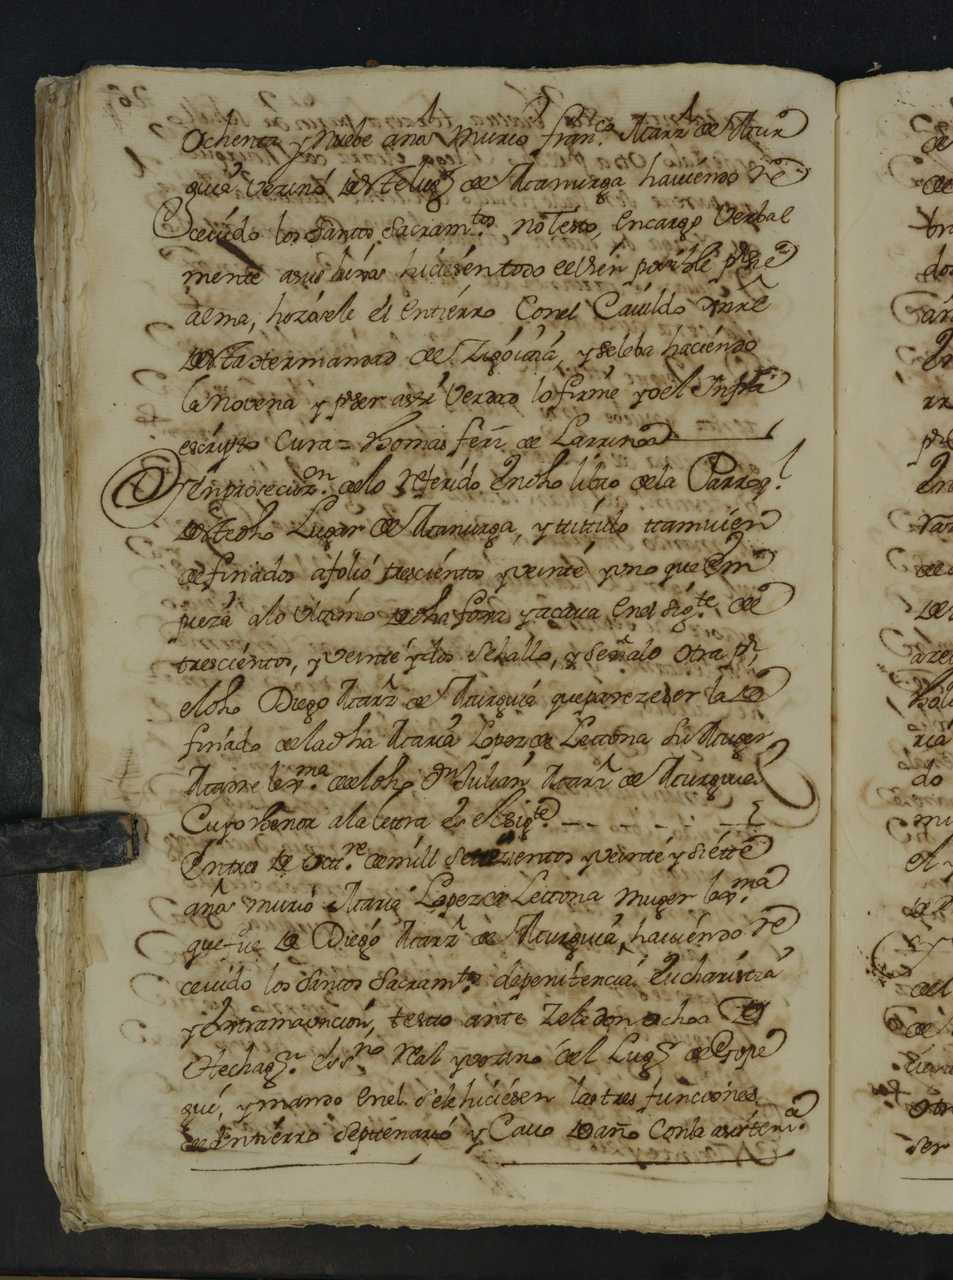 Ochenta y Nuebe años Murio Fran.co Marz de Mur
guia Vezino deste lug.r de Mamurga haviendo re
cevido los Santos Sacram.tos no testo, encargo Verbal
mente a sus hijos hiciesen todo el bien posible por su
alma, hizosele el Entierro Con el Cavildo
desta Hermandad de Zigoitia, y se leba haciendo
la Novena y por ser assi Verdad lo firme yo el Infra
escripto Cura = Thomas Fern de Larrinoa
En prosecuz.on de lo referido En dho libro de la Parroq.l
deste dho Lugar de Mamurga, y titulo tamvien
de finados a folio trescientos y veinte y uno que Em
pieza a lo Ultimo de dha foxa y acava en el sig.te de
trescientos, y veinte y dos se hallo, y señalo otra p.r
el dho Diego Marz de Murguia que pareze ser la de
finado de la dha Maria Lopez de Letona su Muger
Madre lex.ma de el dho Dn Julian Marz de Murguia
Cuyo thenor a la letra Es el Sig.te
En tres de Oct.re de mill Setecientos y veinte y siette
años murio Maria Lopez de Letona Muger lex.ma
que fue de Diego Marz de Murguia, haviendo re
cevido los Santos Sacram.tos de penitencia Eucharistia
y Extramauncion, testo ante Zeledon Ochoa de
Echag.n Ess.no Real y vezino del Lug.r de Gope
gui, y mando en el se le hiciesen las tres funciones
de Entierro Septenario y Cavo de año Con la asisten.a